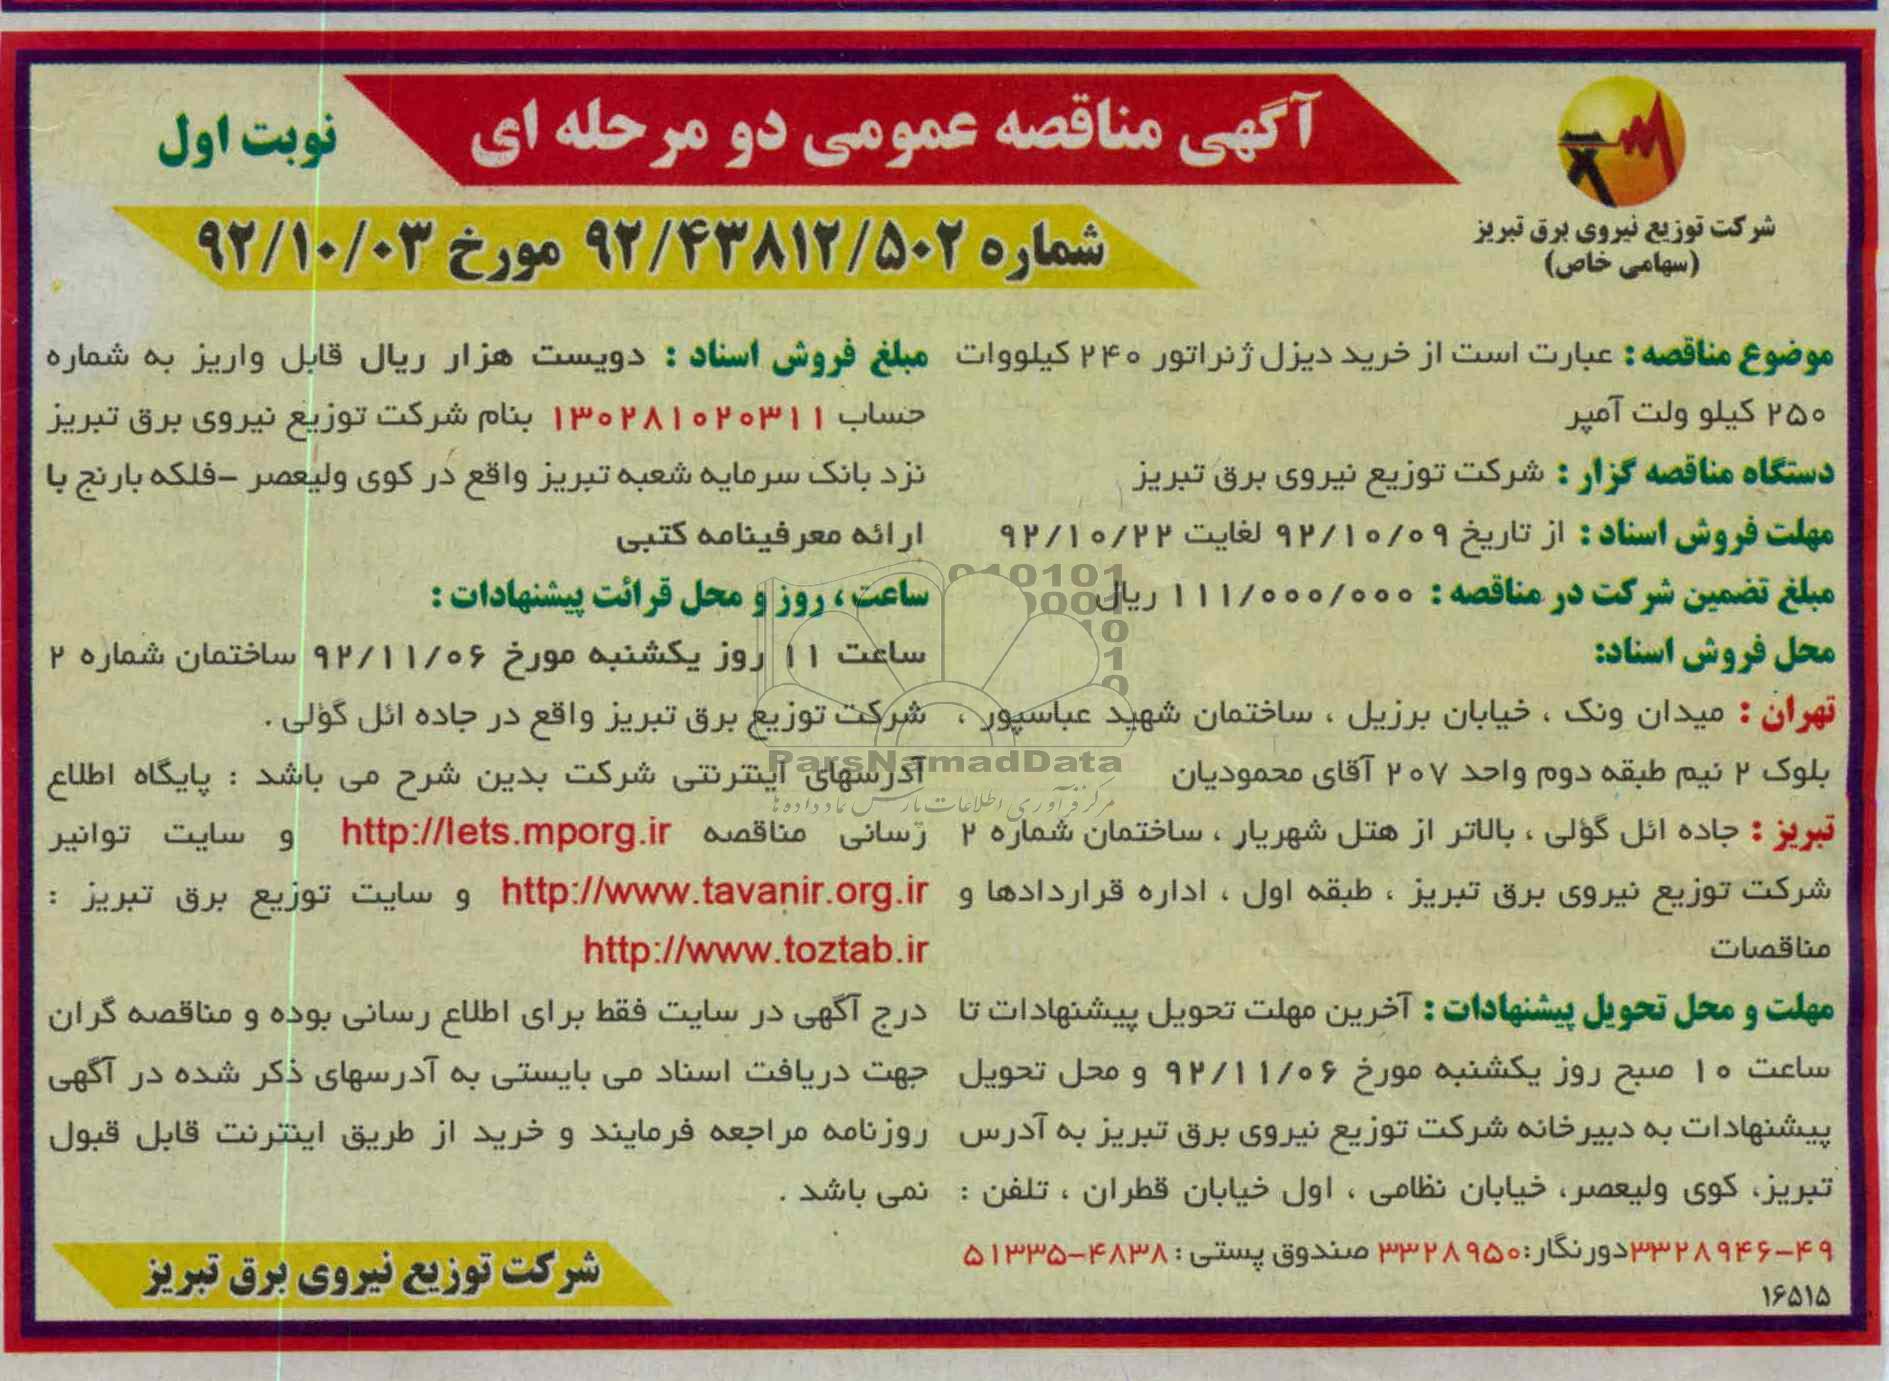 آگهی مناقصه عمومی دو مرحله ای
نوبت اول
شرکت توزیع نیروی برق تبریز
(سهامی خاص)
شماره ۹۲/۴۳۸۱۲/۵۰۲ مورخ ۹۲/۱۰/۰۳
موضوع مناقصه : عبارت است از خرید دیزل ژنراتور ۲۴۰ کیلووات
۲۵۰ کیلو ولت آمپر
دستگاه مناقصه گزار : شرکت توزیع نیروی برق تبریز
مهلت فروش اسناد : از تاریخ ۹۲/۱۰/۰۹ لغایت ۹۲/۱۰/۲۲
مبلغ تضمین شرکت در مناقصه : ۱۱۱/۰۰۰/۰۰۰ ریال
محل فروش اسناد:
تهران : میدان ونک ، خیابان برزیل ، ساختمان شهید عباسپور ،
بلوک ۲ نیم طبقه دوم واحد ۲۰۷ آقای محمودیان
تبریز : جاده ائل گؤلی ، بالاتر از هتل شهریار ، ساختمان شماره ۲
شرکت توزیع نیروی برق تبریز ، طبقه اول ، اداره قراردادها و
مناقصات
مهلت و محل تحویل پیشنهادات : آخرین مهلت تحویل پیشنهادات تا
ساعت ۱۰ صبح روز یکشنبه مورخ ۹۲/۱۱/۰۶ و محل تحویل
پیشنهادات به دبیرخانه شرکت توزیع نیروی برق تبریز به آدرس
تبریز، کوی ولیعصر، خیابان نظامی ، اول خیابان قطران ، تلفن :
۳۳۲۸۹۴۶-۴۹دورنگار:۳۳۲۸۹۵۰ صندوق پستی : ۴۸۳۸-۵۱۳۳۵
۱۶۵۱۵
مبلغ فروش اسناد : دویست هزار ریال قابل واریز به شماره
حساب ۱۳۰۲۸۱۰۲۰۳۱۱ بنام شرکت توزیع نیروی برق تبریز
نزد بانک سرمایه شعبه تبریز واقع در کوی ولیعصر -فلکه بارنج با
ارائه معرفینامه کتبی
ساعت ، روز و محل قرائت پیشنهادات :
ساعت ۱۱ روز یکشنبه مورخ ۹۲/۱۱/۰۶ ساختمان شماره ۲
شرکت توزیع برق تبریز واقع در جاده ائل گؤلی .
آدرسهای اینترنتی شرکت بدین شرح می باشد : پایگاه اطلاع
رسانی مناقصه http://iets.mporg.ir و سایت توانیر
http://www.tavanir.org.ir و سایت توزیع برق تبریز :
http://www.toztab.ir
درج آگهی در سایت فقط برای اطلاع رسانی بوده و مناقصه گران
جهت دریافت اسناد می بایستی به آدرسهای ذکر شده در آگهی
روزنامه مراجعه فرمایند و خرید از طریق اینترنت قابل قبول
نمی باشد .
شرکت توزیع نیروی برق تبریز
ParsNamadData
مرکز فرآوری اطلاعات پارس نماد داده ها